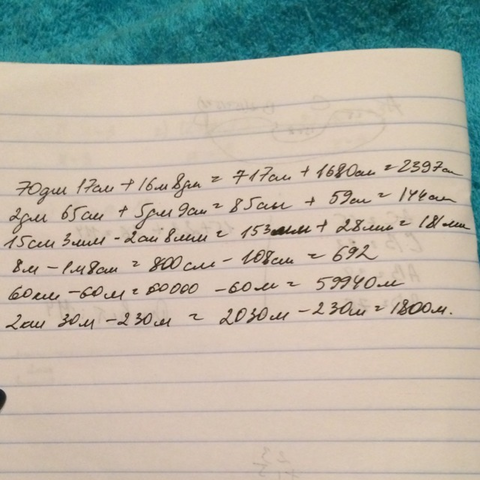 70дм 17см + 16м 8дм = 717см + 1680см = 2397см
2дм 65см + 5дм 9см = 85см + 59см = 144см
15см 3мм - 2см 8мм = 153мм + 28мм = 181мм
8м - 1м 8см = 800см - 108см = 692
60км - 60м = 60000 - 60м = 59940м
2км 30м - 230м = 2030м - 230м = 1800м.